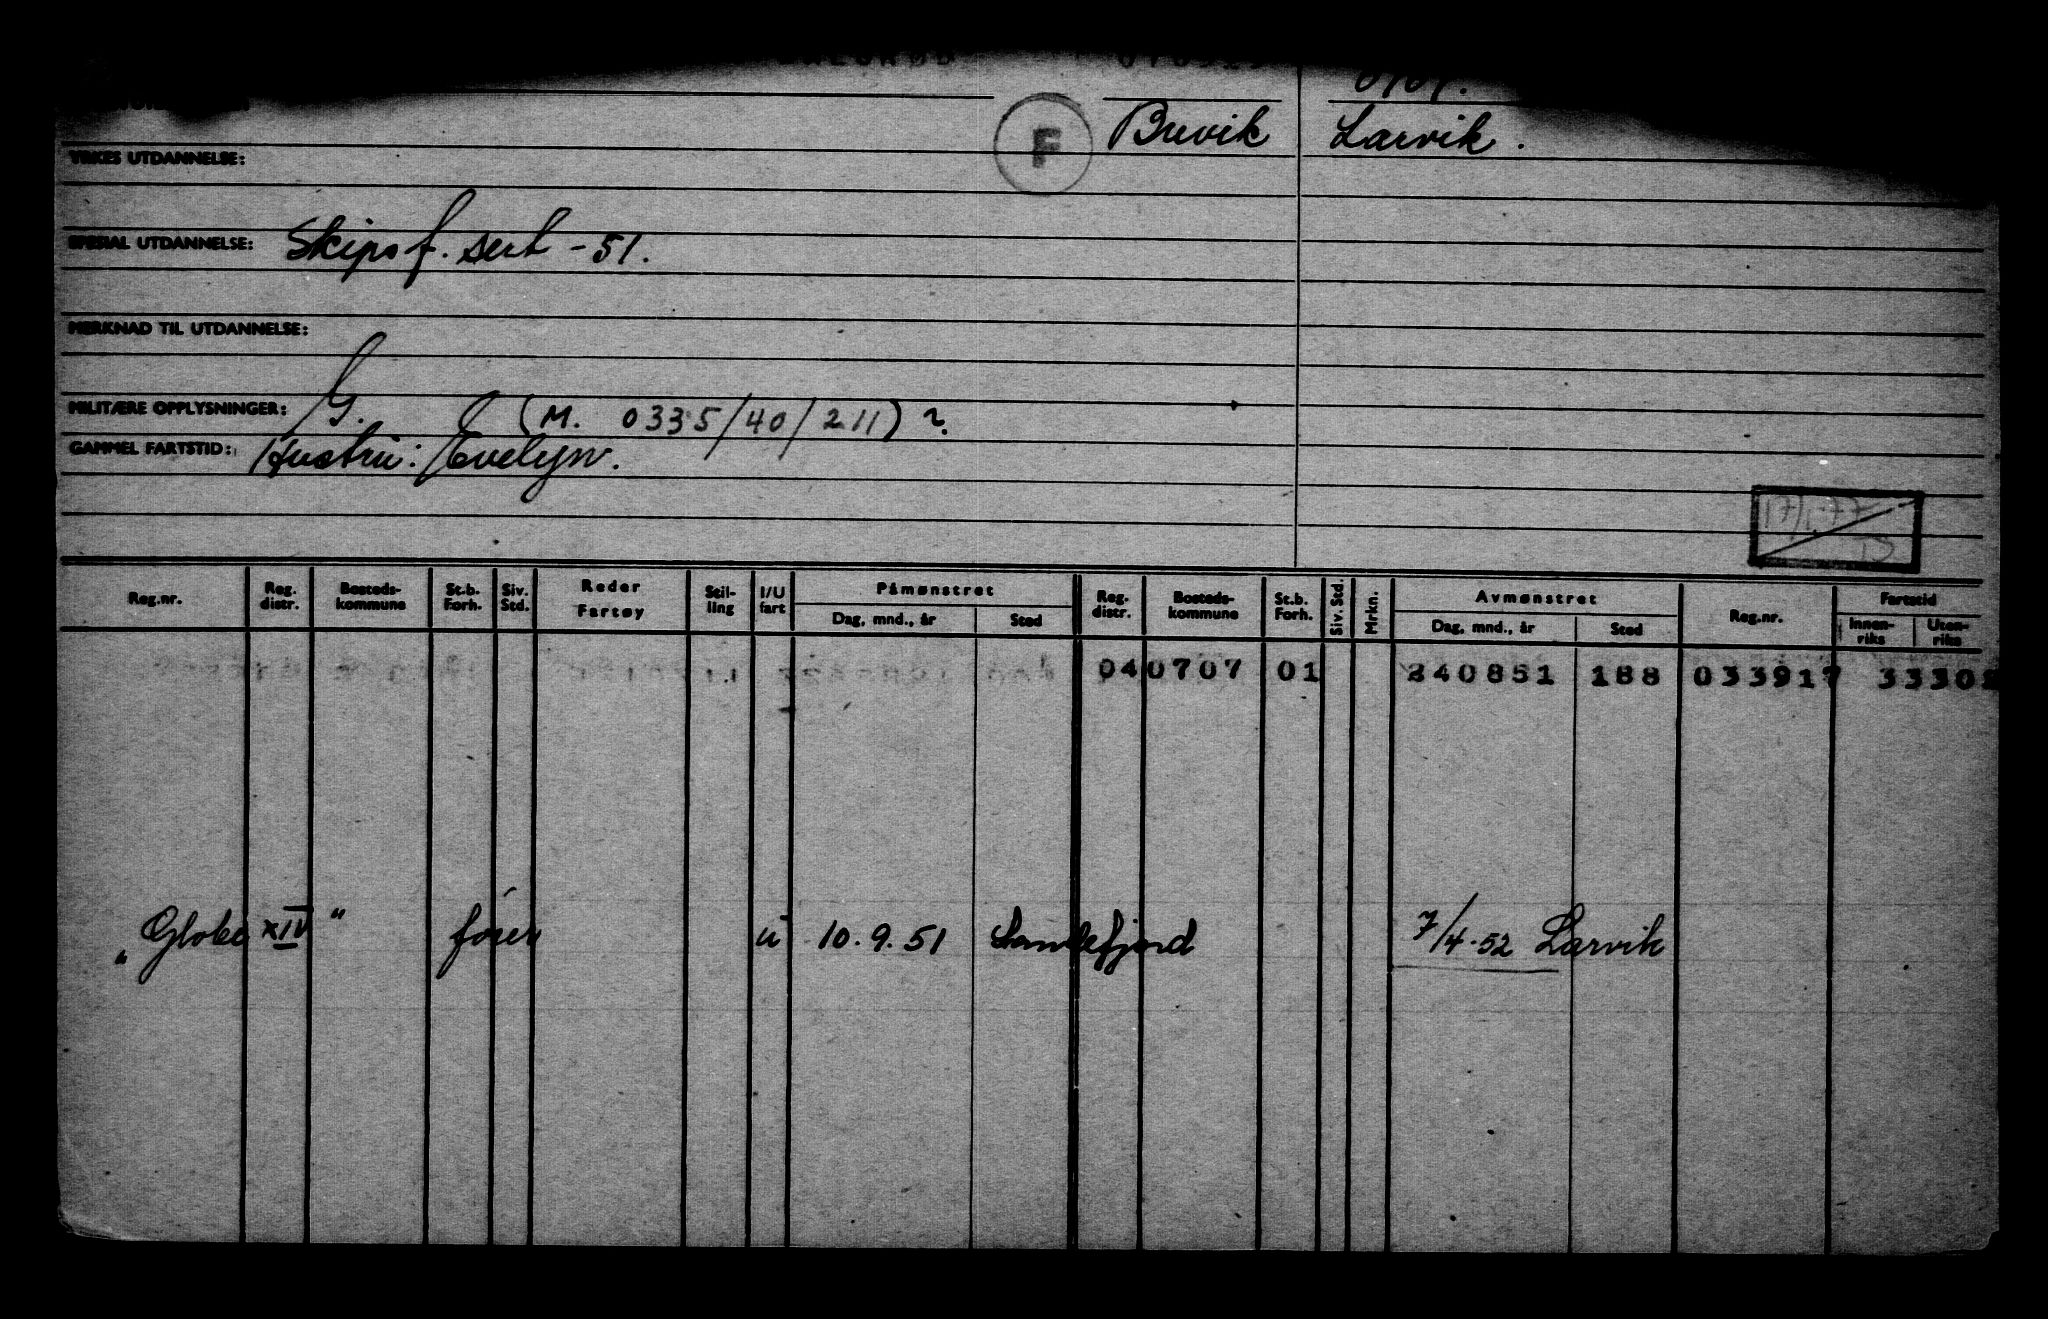 F Brevik Larvik.
YRKES UTDANNELSE:
SPESIAL UTDANNELSE: Skipsf. sert - 51.
MERKNAD TIL UTDANNELSE:
MILITÆRE OPPLYSNINGER: G. (M. 0335/40/211) ?
GAMMEL FARTSTID: Hustru: Evelyn.
17/1-77
Reg.nr. Reg. distr. Bosteds-kommune St.b. Forh. Siv. Std. Reder Fartøy Stil-ling I/U fart Påmønstret Dag, mnd., år Sted Reg. distr. Bosteds-kommune St.b. Forh. Siv. Std. Mrkn. Avmønstret Dag, mnd., år Sted Reg.nr. Fartstid Innen-riks Uten-riks
040707 01 240851 188 033917
"Globe XIV" fører u 10.9.51 Sandefjord 7/4-52 Larvik